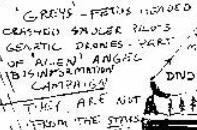 "GREYS" - FETUS HEADED
CRASHED SAUCER PILOTS
GENETIC DRONES - PART
OF "ALIEN" ANGEL
DISINFORMATION
CAMPAIGN
THEY ARE NOT
FROM THE STARS
DND